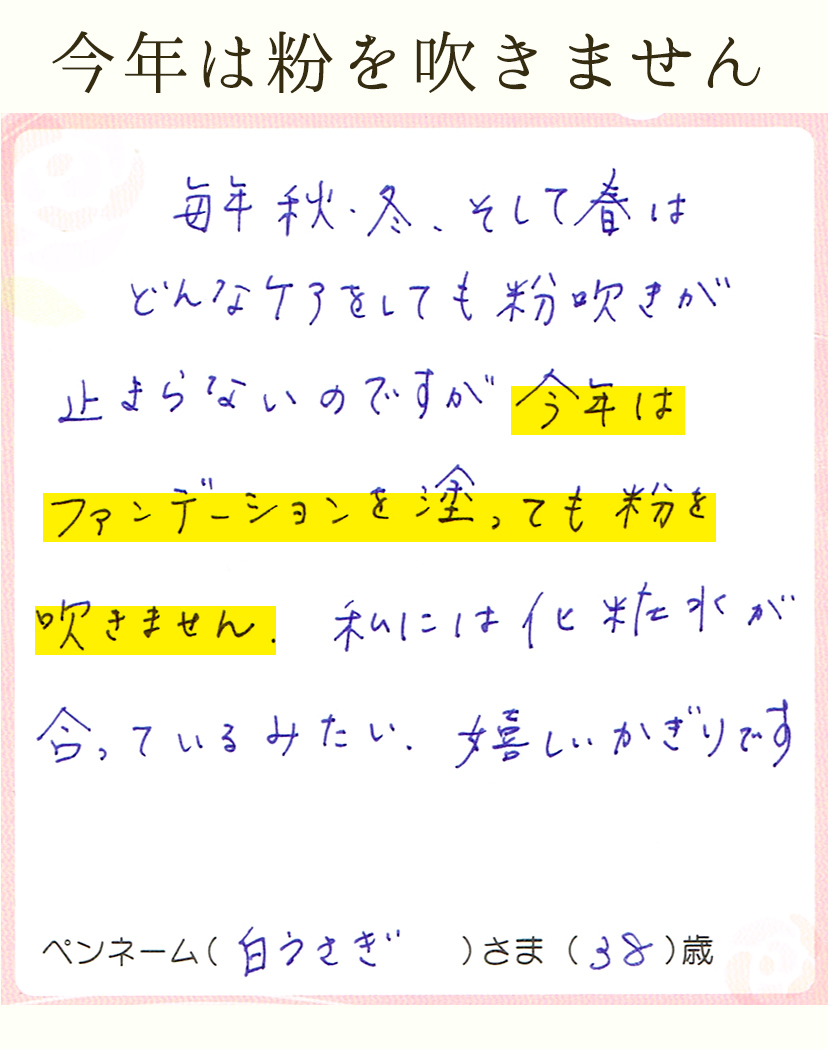 今年は粉を吹きません
毎年秋・冬、そして春は
どんなケアをしても粉吹きが
止まらないのですが今年は
ファンデーションを塗っても粉を
吹きません. 私には化粧水が
合っているみたい. 嬉しいかぎりです
ペンネーム(白うさぎ)さま(38)歳